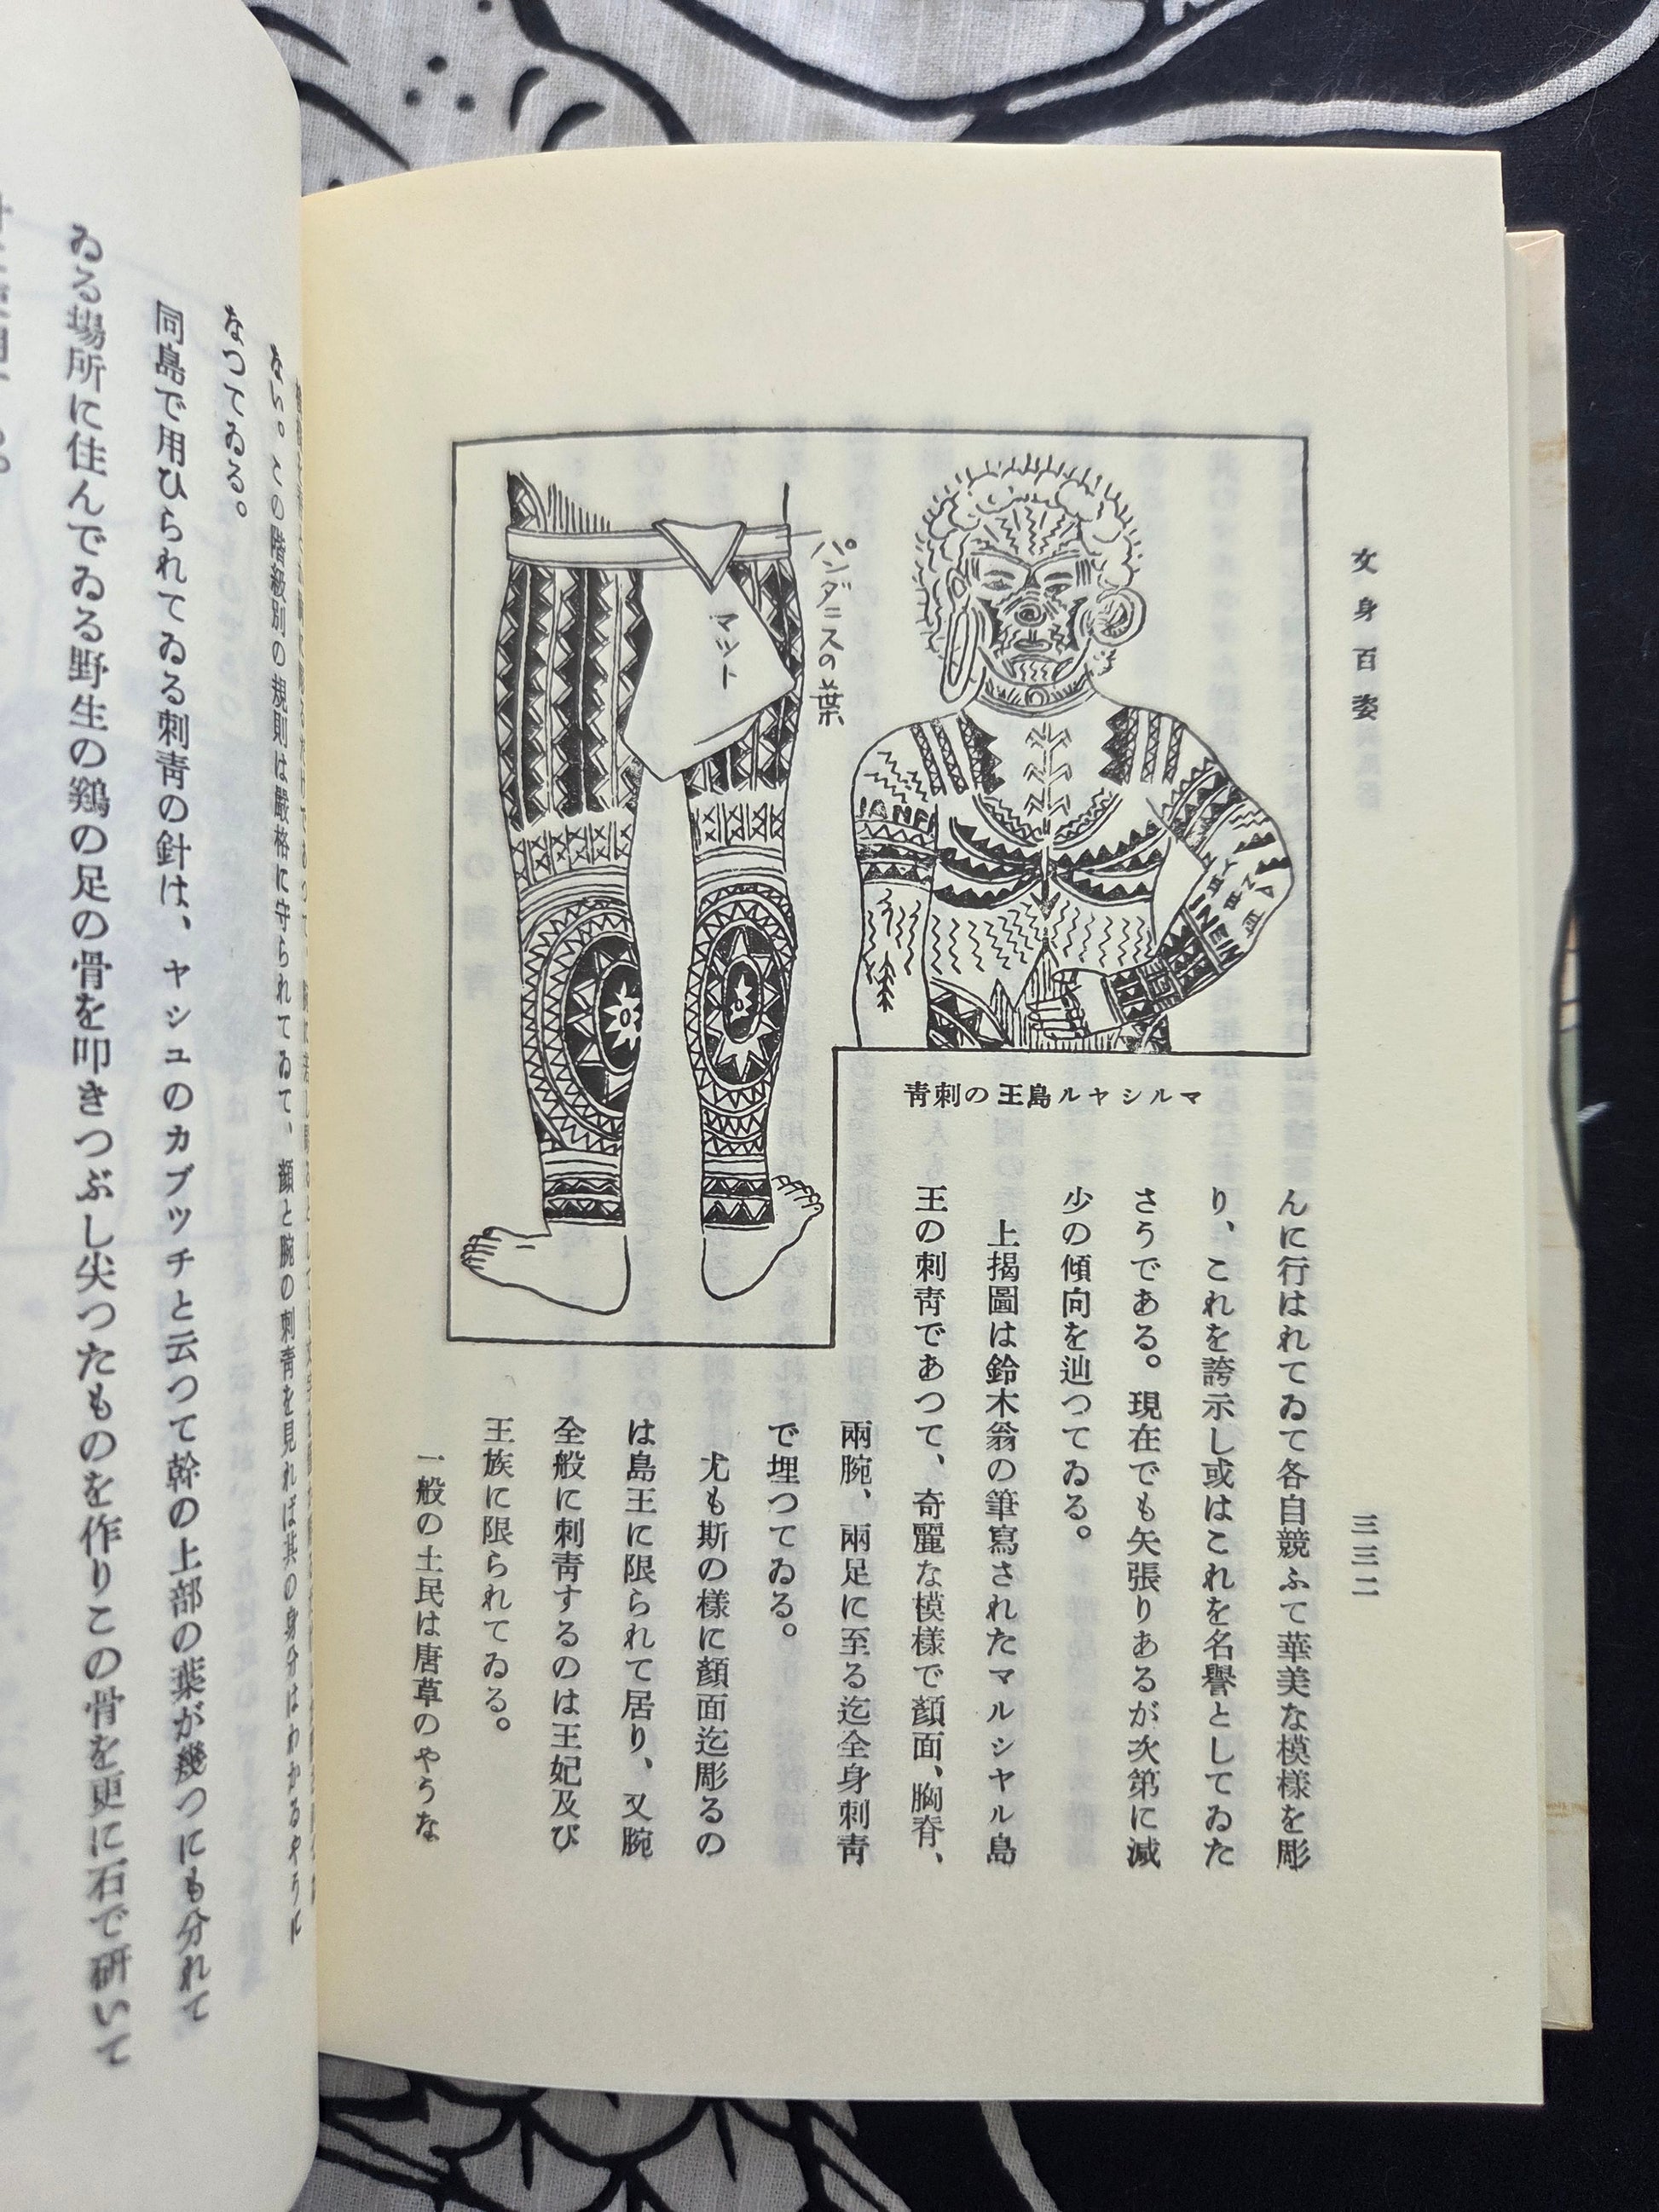 文身百姿
三三二
んに行はれてゐて各自競ふて華美な模樣を彫
り、これを誇示し或はこれを名譽としてゐた
さうである。現在でも矢張りあるが次第に減
少の傾向を辿つてゐる。
上揭圖は鈴木翁の筆寫されたマルシヤル島
王の刺靑であつて、奇麗な模樣で顏面、胸脊、
兩腕、兩足に至る迄全身刺靑
で埋つてゐる。
尤も斯の樣に顏面迄彫るの
は島王に限られて居り、又腕
全般に刺靑するのは王妃及び
王族に限られてゐる。
一般の土民は唐草のやうな
マルシヤル島王の刺靑
パンダニスの葉
マット
ない。この階級別の規則は嚴格に守られてゐて、顏と腕の刺靑を見れば其の身分はわかるやうに
なつてゐる。
同島で用ひられてゐる刺靑の針は、ヤシユのカブツチと云つて幹の上部の葉が幾つにも分れて
ゐる場所に住んでゐる野生の鷄の足の骨を叩きつぶし尖つたものを作りこの骨を更に石で硏いて